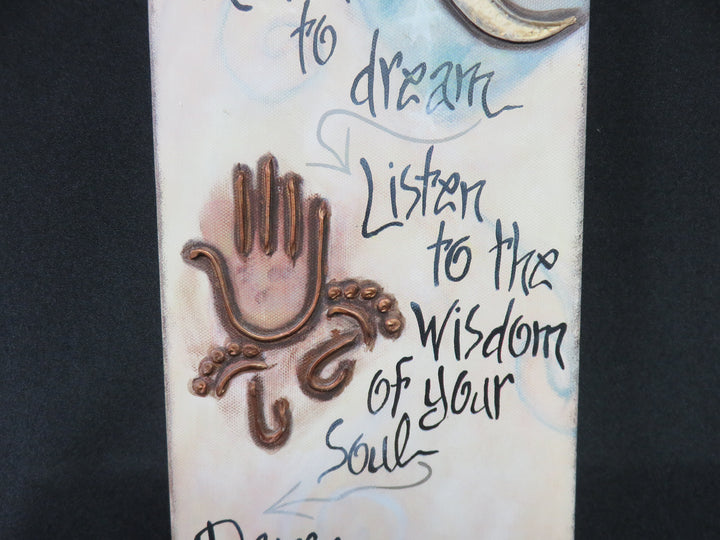 to
dream
Listen
to the
Wisdom
of your
Soul